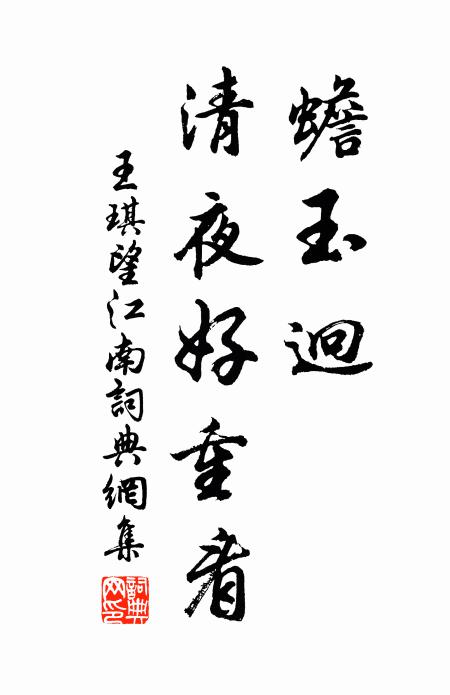 蟾玉迥
清夜好重看
王琪望江南詞典網集
詞典
网印